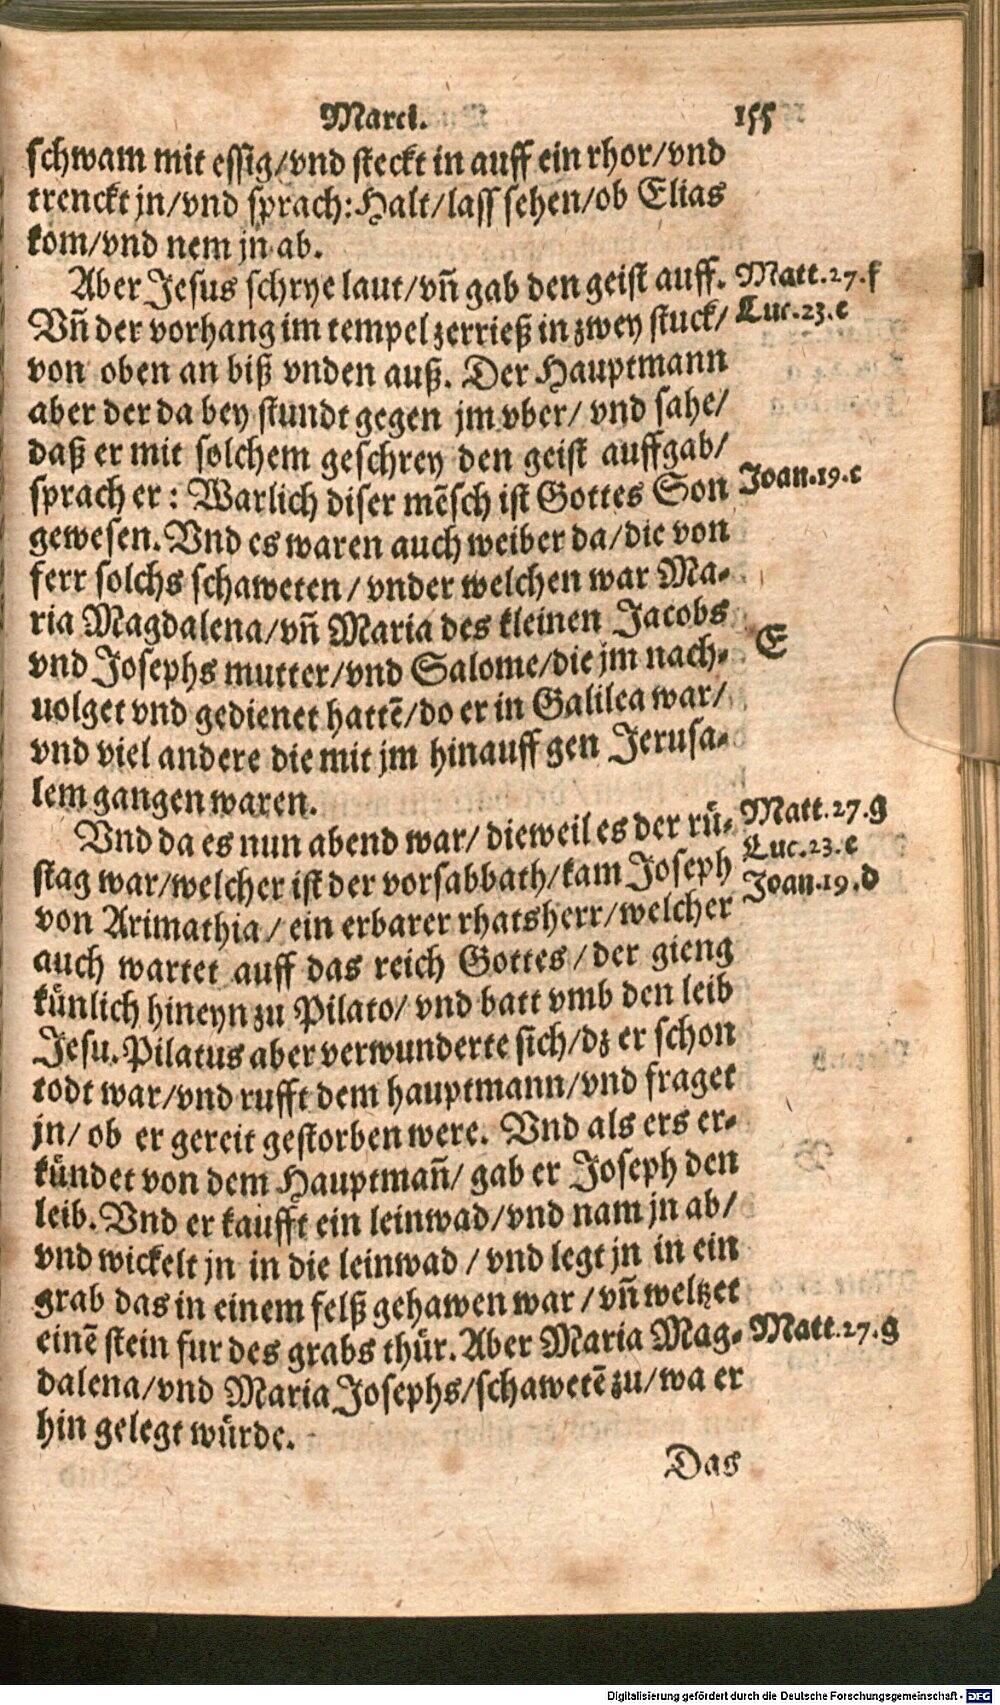 Marci. 155
schwam mit essig/vnd steckt in auff ein rhor/vnd
trenckt jn/vnd sprach: Halt/lass sehen/ob Elias
kom/vnd nem jn ab.
Aber Jesus schrye laut/vn̄ gab den geist auff. Matt.27.f
Vn̄ der vorhang im tempel zerrieß in zwey stuck/ Luc.23.e
von oben an biß vnden auß. Der Hauptmann
aber der da bey stundt gegen jm vber/ vnd sahe/
daß er mit solchem geschrey den geist auffgab/
sprach er: Warlich diser mēsch ist Gottes Son Joan.19.c
gewesen. Vnd es waren auch weiber da/die von
ferr solchs schaweten/ vnder welchen war Ma-
ria Magdalena/vn̄ Maria des kleinen Jacobs
vnd Josephs mutter/vnd Salome/die jm nach- E
uolget vnd gedienet hattē/do er in Galilea war/
vnd viel andere die mit jm hinauff gen Jerusa-
lem gangen waren.
Vnd da es nun abend war/ dieweil es der rü- Matt.27.g
stag war/welcher ist der vorsabbath/kam Joseph Luc.23.e
von Arimathia/ ein erbarer rhatsherr/welcher Joan.19.d
auch wartet auff das reich Gottes/der gieng
künlich hineyn zu Pilato/ vnd batt vmb den leib
Jesu. Pilatus aber verwunderte sich/dz er schon
todt war/vnd rufft dem hauptmann/vnd fraget
jn/ ob er gereit gestorben were. Vnd als ers er-
kündet von dem Hauptman̄/ gab er Joseph den
leib. Vnd er kaufft ein leinwad/vnd nam jn ab/
vnd wickelt jn in die leinwad/ vnd legt jn in ein
grab das in einem felß gehawen war/vn̄ weltzet
einē stein fur des grabs thür. Aber Maria Mag- Matt.27.g
dalena/vnd Maria Josephs/schawetē zu/wa er
hin gelegt würde.
Das
Digitalisierung gefördert durch die Deutsche Forschungsgemeinschaft - DFG